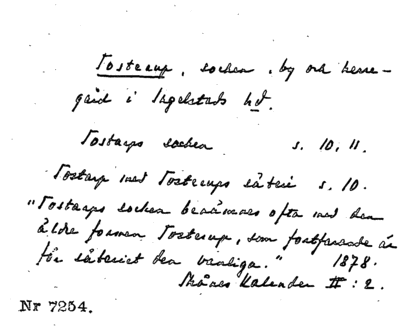 Tosterup, socken, by och herre-
gård i Ingelstads hd.
Tostarps socken s. 10, 11.
Tostarp med Tosterups säteri s. 10.
"Tostarps socken benämnes ofta med den
äldre formen Tosterup, som fortfarande är
för säteriet den vanliga." 1878.
Skånes Kalender II: 2.
Nr 7254.